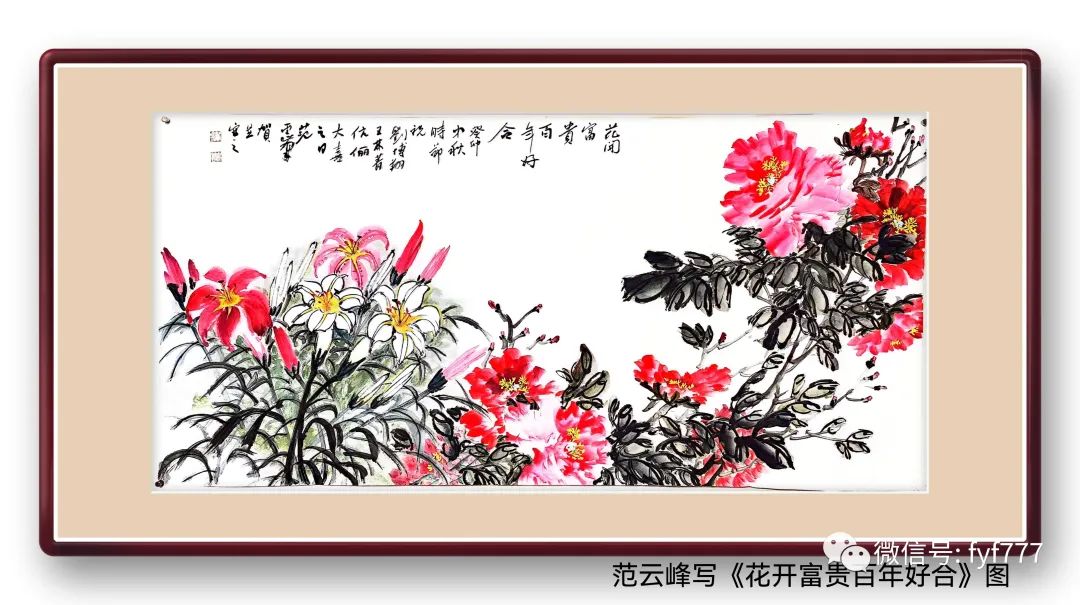 花開
富
貴
百
年好
合
癸卯
中秋
時節
祝
劉博翔
伉俪
大喜
之日
范
雲峯
賀
並
寫之
微信号: fyf777
范云峰写《花开富贵百年好合》图